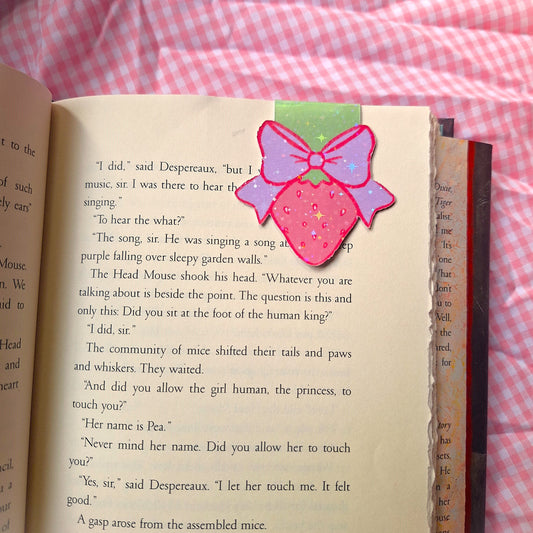 t to the
of such
ely ears"
Mouse.
n. We
aid to
Head
and
heart
cil,
n a
our
of
"I did," said Despereaux, "but I
music, sir. I was there to hear th
singing."
"To hear the what?"
"The song, sir. He was singing a song a ep
purple falling over sleepy garden walls."
The Head Mouse shook his head. "Whatever you are
talking about is beside the point. The question is this and
only this: Did you sit at the foot of the human king?"
"I did, sir."
The community of mice shifted their tails and paws
and whiskers. They waited.
"And did you allow the girl human, the princess, to
touch you?"
"Her name is Pea."
"Never mind her name. Did you allow her to touch
you?"
"Yes, sir," said Despereaux. "I let her touch me. It felt
good."
A gasp arose from the assembled mice.
Dixie,
Tiger
alist.
me
It's
one
What
don't
u to
Well,
the
red,
for
tory
has
sets.
He
n a
ouse